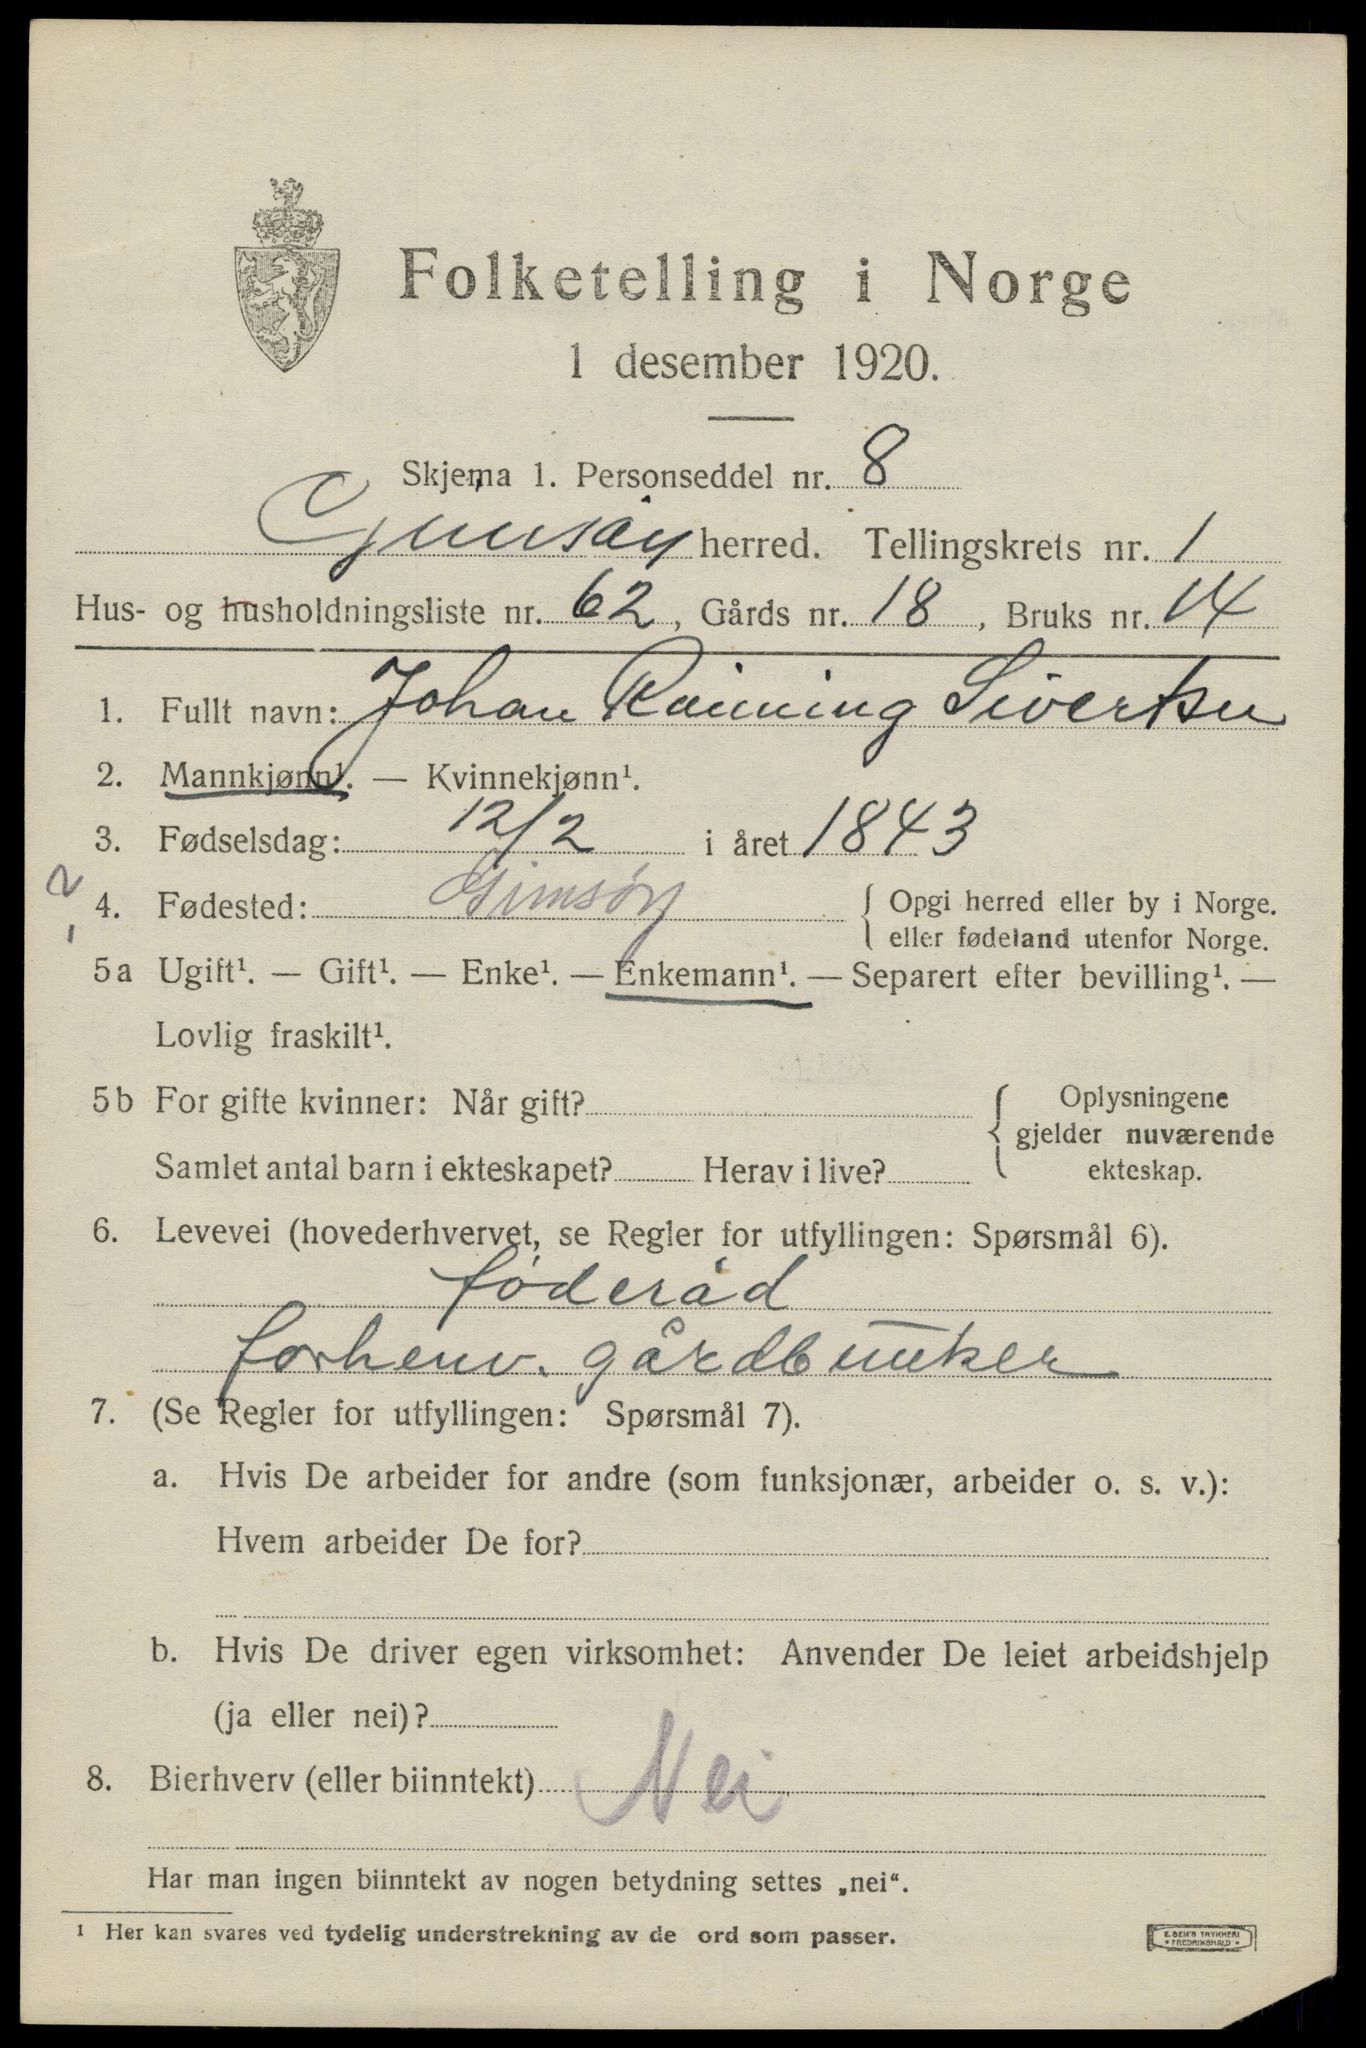 Folketelling i Norge
1 desember 1920.
Skjema 1. Personseddel nr. 8
Gimsøy herred. Tellingskrets nr. 1
Hus- og husholdningsliste nr. 62, Gårds nr. 18, Bruks nr. 14
1. Fullt navn: Johan Sivertsen
2. Mannkjønn¹. — Kvinnekjønn¹.
3. Fødselsdag: 12/2 i året 1843
4. Fødested: Gimsøy { Opgi herred eller by i Norge.
eller fødeland utenfor Norge.
5a Ugift¹. — Gift¹. — Enke¹. — Enkemann¹. — Separert efter bevilling¹. —
Lovlig fraskilt¹.
5b For gifte kvinner: Når gift? { Oplysningene
gjelder nuværende
Samlet antal barn i ekteskapet? Herav i live? ekteskap.
6. Levevei (hovederhvervet, se Regler for utfyllingen: Spørsmål 6).
føderåd
forhenv. gårdbruker
7. (Se Regler for utfyllingen: Spørsmål 7).
a. Hvis De arbeider for andre (som funksjonær, arbeider o. s. v.):
Hvem arbeider De for?
b. Hvis De driver egen virksomhet: Anvender De leiet arbeidshjelp
(ja eller nei)?
8. Bierhverv (eller biinntekt) Nei
Har man ingen biinntekt av nogen betydning settes „nei“.
¹ Her kan svares ved tydelig understrekning av de ord som passer.
E. SEM'S TRYKKERI
* FREDRIKSHALD *